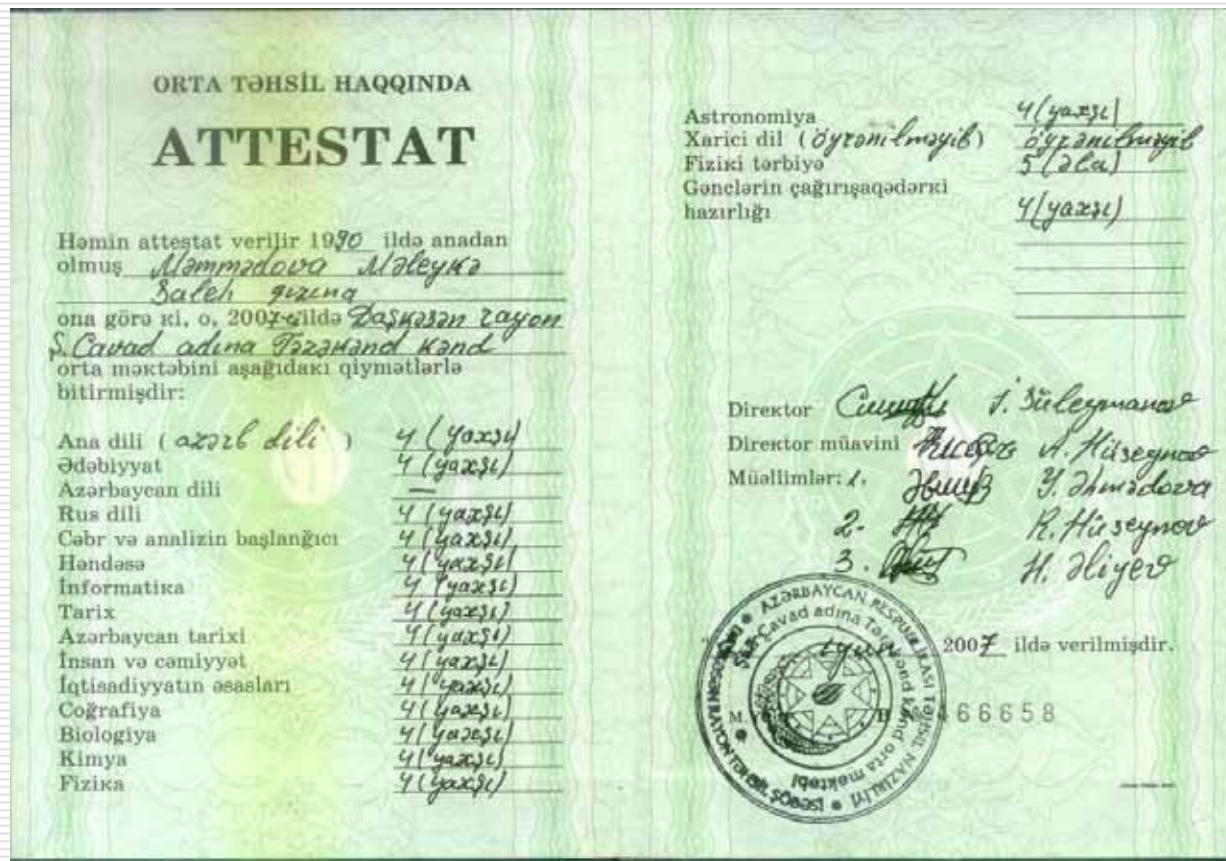 ORTA TƏHSİL HAQQINDA
ATTESTAT
Həmin attestat verilir 1990 ildə anadan
olmuş Məmmədova Məleykə
Saleh qızına
ona görə ki, o, 2007-ci ildə Daşkəsən rayon
Ş. Cavad adına Təzəkənd kənd
orta məktəbini aşağıdakı qiymətlərlə
bitirmişdir:
Ana dili ( azərb dili ) 4 (yaxşı)
Ədəbiyyat 4 (yaxşı)
Azərbaycan dili —
Rus dili 4 (yaxşı)
Cəbr və analizin başlanğıcı 4 (yaxşı)
Həndəsə 4 (yaxşı)
İnformatika 4 (yaxşı)
Tarix 4 (yaxşı)
Azərbaycan tarixi 4 (yaxşı)
İnsan və cəmiyyət 4 (yaxşı)
İqtisadiyyatın əsasları 4 (yaxşı)
Coğrafiya 4 (yaxşı)
Biologiya 4 (yaxşı)
Kimya 4 (yaxşı)
Fizika 4 (yaxşı)
Astronomiya 4 (yaxşı)
Xarici dil ( öyrənilməyib ) öyrənilməyib
Fiziki tərbiyə 5 (əla)
Gənclərin çağırışaqədərki
hazırlığı 4 (yaxşı)
Direktor İ. Süleymanov
Direktor müavini A. Hüseynov
Müəllimlər: 1. Y. Əhmədova
2. R. Hüseynov
3. H. Əliyev
AZƏRBAYCAN RESPUBLİKASI TƏHSİL NAZİRLİYİ
Cavad adına Təzəkənd kənd orta məktəbi
iyun 2007 ildə verilmişdir.
B № 466658